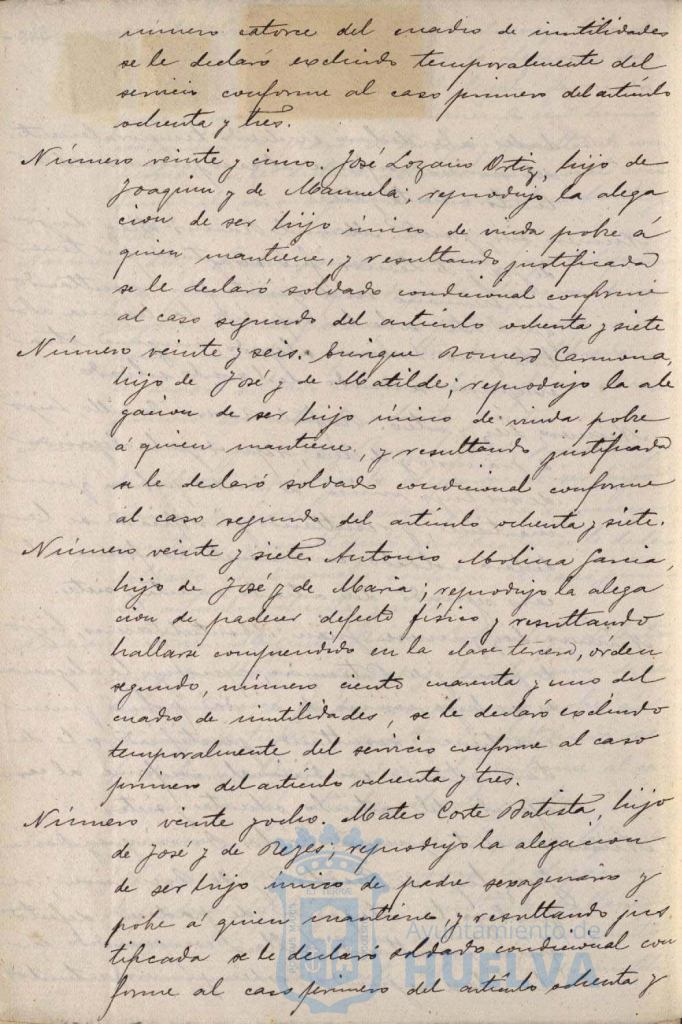 número catorce del cuadro de inutilidades
se le declaró excluido temporalmente del
servicio conforme al caso primero del artículo
ochenta y tres.
Número veinte y cinco. José Lozano Ortiz, hijo de
Joaquin y de Manuela; reprodujo la alega
cion de ser hijo único de viuda pobre á
quien mantiene, y resultando justificada
se le declaró soldado condicional conforme
al caso segundo del artículo ochenta y siete
Número veinte y seis. Enrique Romero Carmona,
hijo de José y de Matilde; reprodujo la ale
gacion de ser hijo único de viuda pobre
á quien mantiene, y resultando justificada
se le declaró soldado condicional conforme
al caso segundo del artículo ochenta y siete.
Número veinte y siete. Antonio Molina Garcia,
hijo de José y de Maria; reprodujo la alega
cion de padecer defecto físico y resultando
hallarse comprendido en la clase tercera, órden
segundo, número ciento cuarenta y uno del
cuadro de inutilidades, se le declaró excluido
temporalmente del servicio conforme al caso
primero del artículo ochenta y tres.
Número veinte y ocho. Mateo Corte Batista, hijo
de José y de Reyes; reprodujo la alegacion
de ser hijo único de padre sexagenario y
pobre á quien mantiene, y resultando jus
tificada se le declaró soldado condicional con
forme al caso primero del artículo ochenta y
Ayuntamiento de
HUELVA